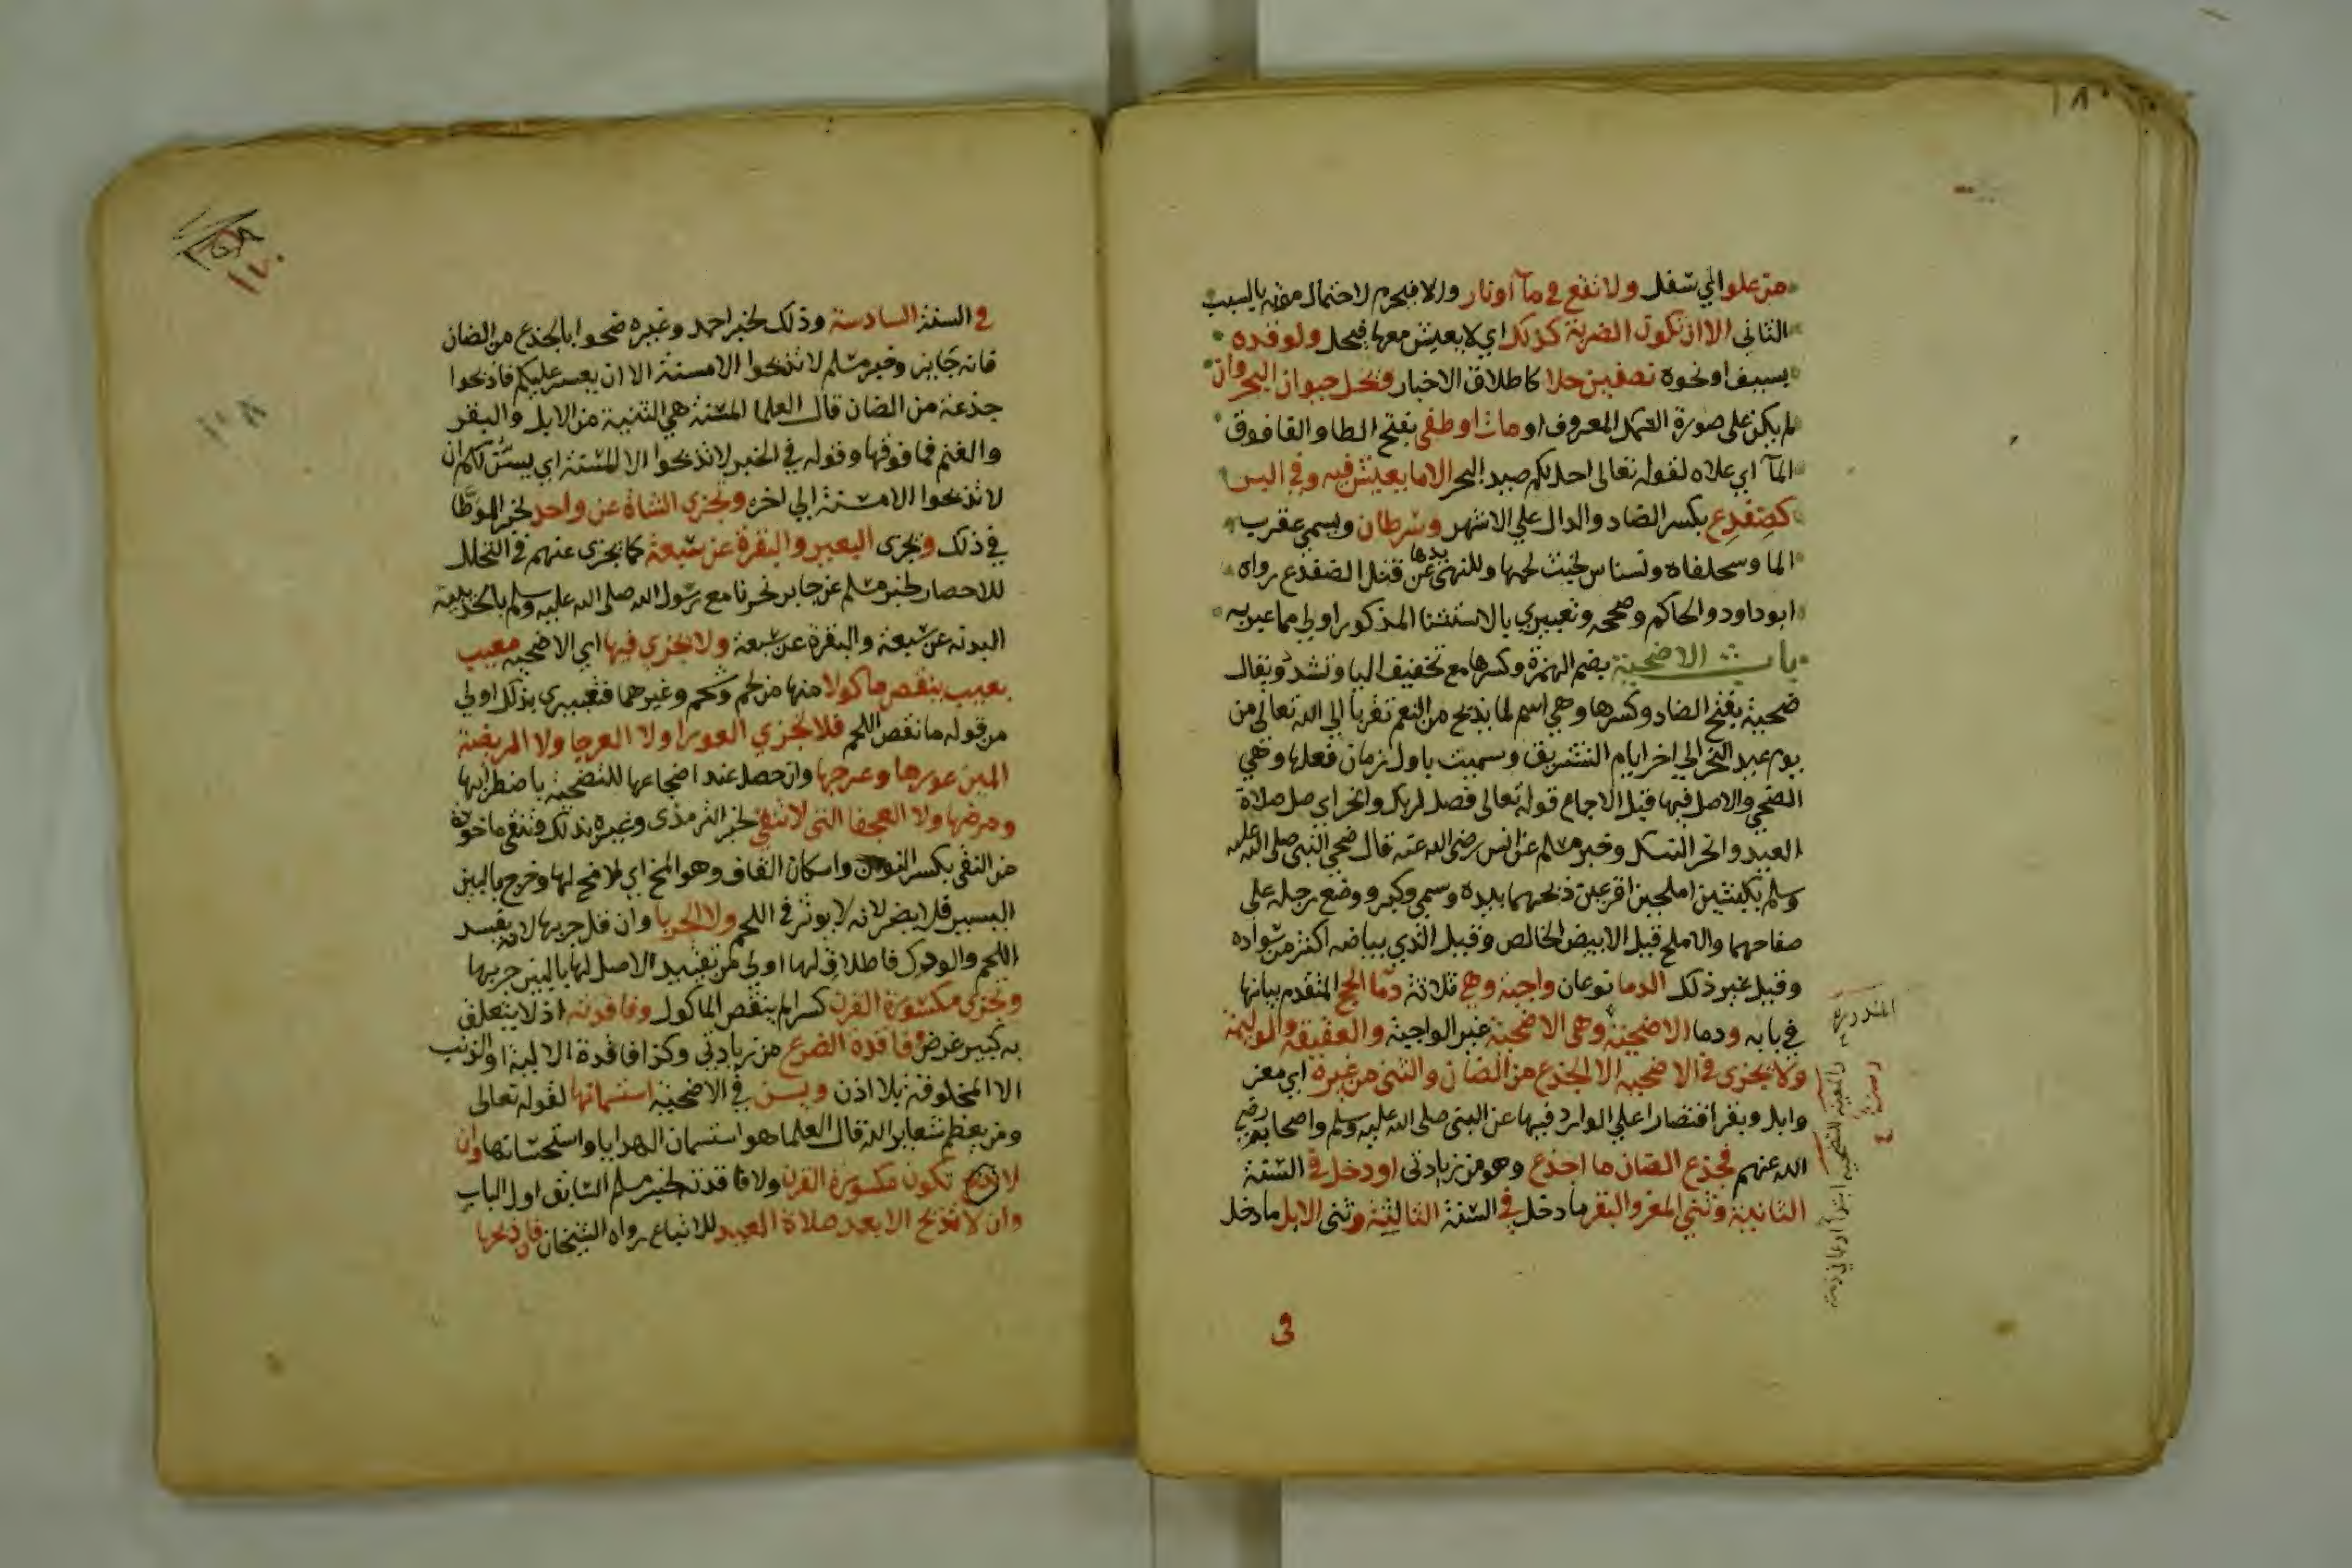 ١٨٠
من علو الي سفل ولا نقع في ماء او نار والا فيحرم لاحتمال موته بالسبب
الثاني الا ان تكون الضربة كذلك اي لا يعيش معها فيحل ولو قده
بسيف او نحوه نصفين حلا كاطلاق الاخبار وتحل حيوان البحر وان
لم يكن على صورة السمك المعروف او مات او طفى بفتح الطا والفا فوق
المآ اي علاه لقوله تعالى احل لكم صيد البحر الا ما يعيش فيه وفي البر
كضفدع بكسر الضاد والدال علي الاشهر وسرطان ويسمي عقرب
الما وسحلفاه ونسناس لخبث لحمها وللنهي عن قتل الضفدع رواه
ابو داود والحاكم وصححه وتعبيري بالاستثنا المذكور اولي مما عبر به
باب الاضحية بضم الهمزة وكسرها مع تخفيف اليا وتشد ويقال
ضحية بفتح الضاد وكسرها وهي اسم لما يذبح من النعم تقربا الي الله تعالى من
يوم عيد النحر الي اخر ايام التشريق وسميت باول زمان فعلها وهي
الضحي والاصل فيها قبل الاجماع قوله تعالى فصل لربك وانحر اي صل صلاة
العيد وانحر النسك وخبر مسلم عن انس رضي الله عنه قال ضحي النبي صلى الله عليه
وسلم بكبشين املحين اقرنين ذبحهما بيده وسمي وكبر ووضع رجله على
صفاحهما والاملح قيل الابيض الخالص وقيل الذي بياضه اكثر من سواده
وقيل غير ذلك الدما نوعان واجبة وهي ثلاثة دمآ الحج المتقدم بيانها
في بابه ودما الاضحية وهي الاضحية غير الواجبة والعقيقة والوليمة
ولا يجزى في الاضحية الا الجذع من الضان والثني من غيره اي معز
وابل وبقر اقتصارا علي الوارد فيها عن النبي صلى الله عليه وسلم واصحابه رضي
الله عنهم فجذع الضان ما اجذع وهو من زيادتي او دخل في السنة
الثانية وثني المعز والبقر ما دخل في السنة الثالثة وثني الابل ما دخل
في
المندوبة
١٧٠
في السنة السادسة وذلك لخبر احمد وغيره ضحوا بالجذع من الضان
فانه جايز وخبر مسلم لا تذبحوا الا مسنة الا ان يعسر عليكم فاذبحوا
جذعة من الضان قال العلما المسنة هي الثنية من الابل والبقر
والغنم فما فوقها وقوله في الخبر لا تذبحوا الا المسنة اي يسن لكم ان
لا تذبحوا الا مسنة الي اخره وتجزي الشاة عن واحد لخبر الموطا
في ذلك ويجزى البعير والبقرة عن سبعة كما يجزى عنهم في التحلل
للاحصار لخبر مسلم عن جابر نحرنا مع رسول الله صلى الله عليه وسلم بالحديبية
البدنة عن سبعة والبقرة عن سبعة ولا يجزي فيها اي الاضحية معيب
بعيب ينقص ماكولا منها من لحم وشحم وغيرهما فتعبيري بذلك اولي
من قوله ما نقص اللحم فلا تجزي العورا ولا العرجا ولا المريضة
البين عورها وعرجها وان حصل عند اضجاعها للتضحية باضطرابها
ومرضها ولا العجفا التي لا تنقي لخبر الترمذي وغيره بذلك وتنقي ماخوذة
من النقي بكسر النون واسكان القاف وهو المخ اي لا مخ لها وخرج بالبين
اليسير فلا يضر لانه لا يوثر في اللحم ولا الجربا وان قل جربها لانه يفسد
اللحم والودك فاطلاقي لها اولي من تقييد الاصل لها بالبين جربها
وتجزى مكسورة القرن كسرا لم ينقص الماكول وفاقدته اذ لا يتعلق
به كبير غرض وفاقدة الضرع من زيادتي وكذا فاقدة الالية او الذنب
الا المخلوقة بلا اذن ويسن في الاضحية استسمانها لقوله تعالى
ومن يعظم شعاير الله قال العلما هو استسمان الهدايا واستحسانها وان
لا تكون مكسورة القرن ولا فاقدته لخبر مسلم السابق اول الباب
وان لا تذبح الا بعد صلاة العيد للاتباع رواه الشيخان فان ذبحها